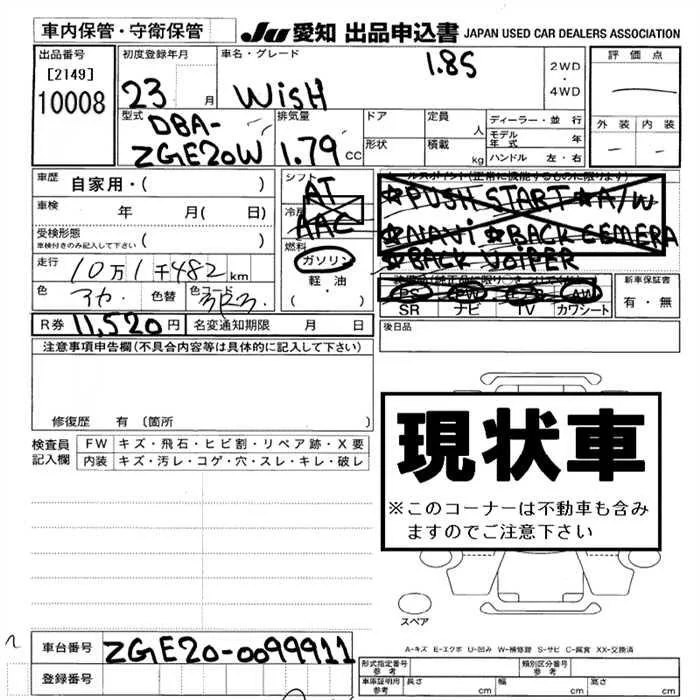 車内保管・守衛保管
JU 愛知 出品申込書 JAPAN USED CAR DEALERS ASSOCIATION
出品番号
[2149]
10008
初度登録年月
23 月
車名・グレード
1.8S
WiSH
2WD
・
4WD
評価点
型式
DBA-
ZGE20W
排気量
1.79 CC
ドア
定員 人
形状
積載 kg
ディーラー・並行
モデル年式 年
ハンドル 左・右
外装 内装
車歴 自家用・( )
車検 年 月( 日)
受検形態
車検付きのみ記入して下さい ( )
走行 10万1千482 km
色 アカ 色替 色コード 3R3
シフト
AT
冷房
AAC
燃料
ガソリン
軽油
( ・ )
セールスポイント(正常に機能するものに限ります)
☆PUSH START ☆A/W
☆NAVi ☆BACK CEMERA
☆BACK WOIPER
PS PW AW
SR ナビ TV カワシート
新車保証書
有・無
R券 11,520 円 名変通知期限 月 日
後日品
注意事項申告欄(不具合内容等は具体的に記入して下さい)
修復歴 有 〔箇所 〕
検査員記入欄
FW キズ・飛石・ヒビ割・リペア跡・X要
内装 キズ・汚レ・コゲ・穴・スレ・キレ・破レ
現状車
※このコーナーは不動車も含み
ますのでご注意下さい
スペア
A-キズ E-エクボ U-凹み W-補修跡 S-サビ C-腐食 XX-交換済
車台番号 ZGE20-0099911
登録番号
形式指定番号 参考
類別区分番号 参考
車庫証明用 参考 長さ cm 幅 cm 高さ cm